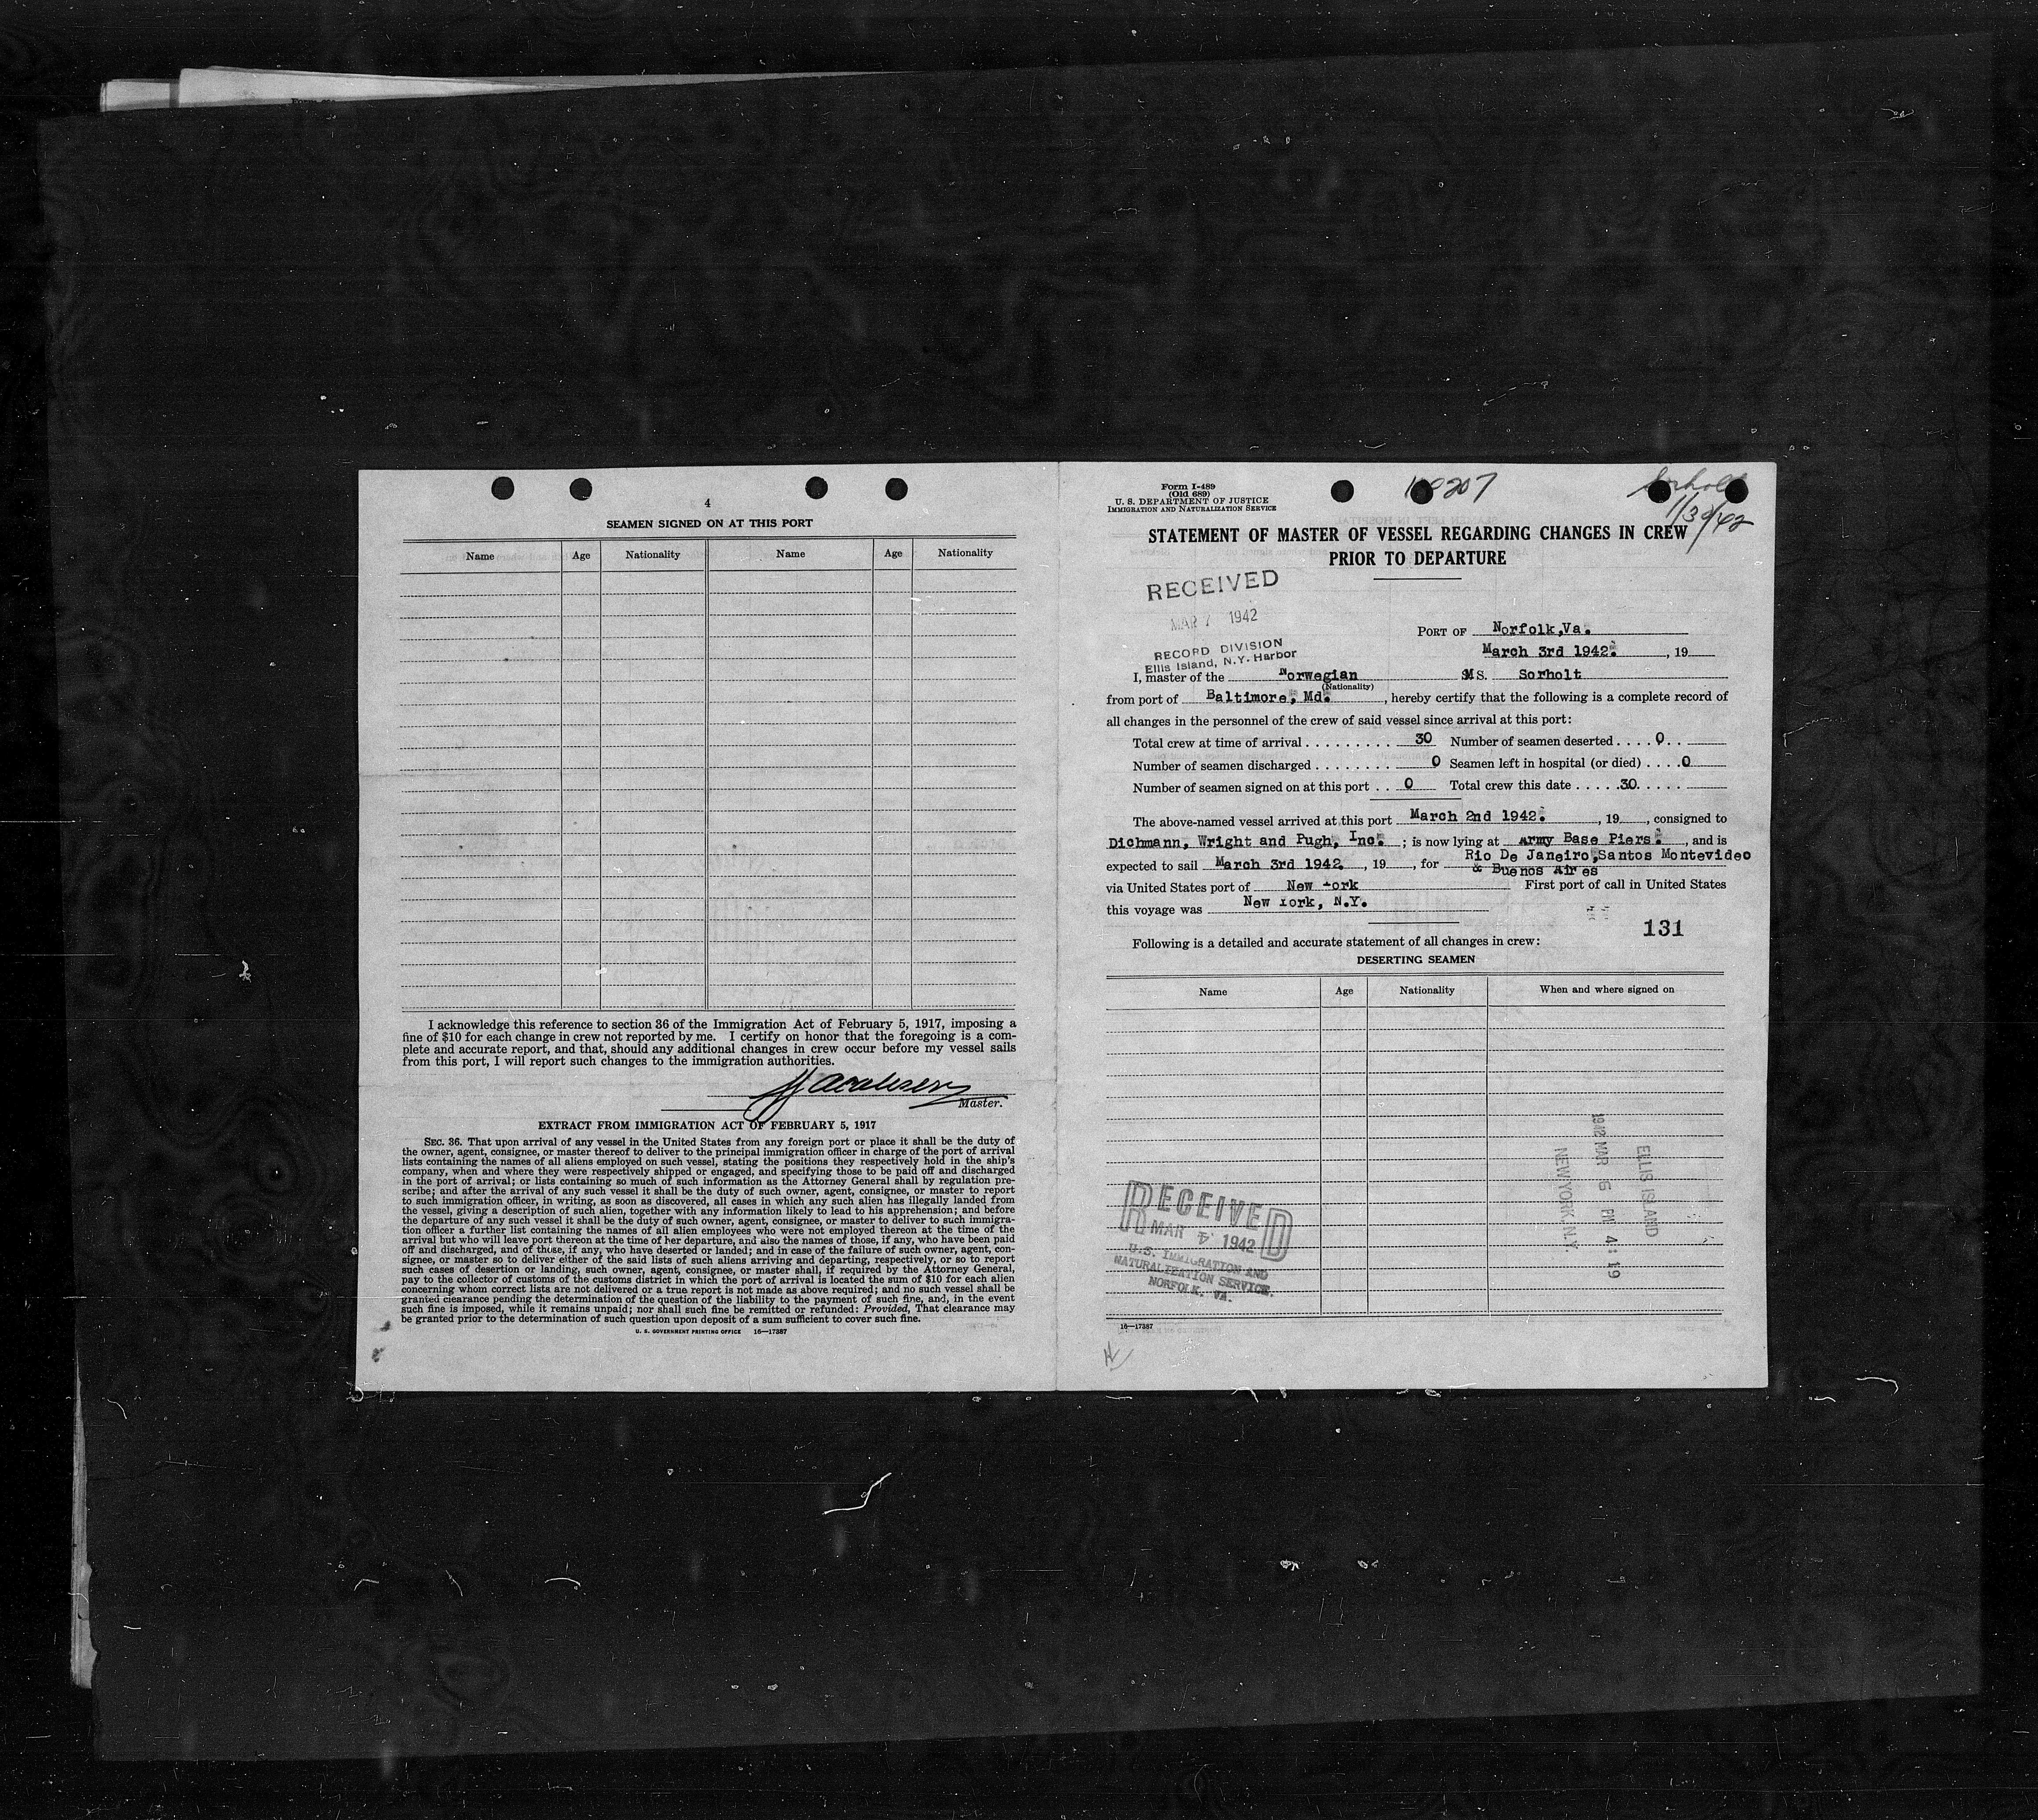 4
SEAMEN SIGNED ON AT THIS PORT
Name Age Nationality Name Age Nationality
I acknowledge this reference to section 36 of the Immigration Act of February 5, 1917, imposing a
fine of $10 for each change in crew not reported by me. I certify on honor that the foregoing is a com-
plete and accurate report, and that, should any additional changes in crew occur before my vessel sails
from this port, I will report such changes to the immigration authorities.
Master.
EXTRACT FROM IMMIGRATION ACT OF FEBRUARY 5, 1917
SEC. 36. That upon arrival of any vessel in the United States from any foreign port or place it shall be the duty of
the owner, agent, consignee, or master thereof to deliver to the principal immigration officer in charge of the port of arrival
lists containing the names of all aliens employed on such vessel, stating the positions they respectively hold in the ship's
company, when and where they were respectively shipped or engaged, and specifying those to be paid off and discharged
in the port of arrival; or lists containing so much of such information as the Attorney General shall by regulation pre-
scribe; and after the arrival of any such vessel it shall be the duty of such owner, agent, consignee, or master to report
to such immigration officer, in writing, as soon as discovered, all cases in which any such alien has illegally landed from
the vessel, giving a description of such alien, together with any information likely to lead to his apprehension; and before
the departure of any such vessel it shall be the duty of such owner, agent, consignee, or master to deliver to such immigra-
tion officer a further list containing the names of all alien employees who were not employed thereon at the time of the
arrival but who will leave port thereon at the time of her departure, and also the names of those, if any, who have been paid
off and discharged, and of those, if any, who have deserted or landed; and in case of the failure of such owner, agent, con-
signee, or master so to deliver either of the said lists of such aliens arriving and departing, respectively, or so to report
such cases of desertion or landing, such owner, agent, consignee, or master shall, if required by the Attorney General,
pay to the collector of customs of the customs district in which the port of arrival is located the sum of $10 for each alien
concerning whom correct lists are not delivered or a true report is not made as above required; and no such vessel shall be
granted clearance pending the determination of the question of the liability to the payment of such fine, and, in the event
such fine is imposed, while it remains unpaid; nor shall such fine be remitted or refunded: Provided, That clearance may
be granted prior to the determination of such question upon deposit of a sum sufficient to cover such fine.
U. S. GOVERNMENT PRINTING OFFICE 16—17387
Form I-489
(Old 689)
U. S. DEPARTMENT OF JUSTICE
IMMIGRATION AND NATURALIZATION SERVICE
Sorholt
1/30/42
STATEMENT OF MASTER OF VESSEL REGARDING CHANGES IN CREW
PRIOR TO DEPARTURE
RECEIVED
MAR 7 1942
RECORD DIVISION
Ellis Island, N.Y. Harbor
PORT OF Norfolk,Va.
March 3rd 1942. , 19
I, master of the Norwegian MS. Sorholt
(Nationality)
from port of Baltimore, Md. , hereby certify that the following is a complete record of
all changes in the personnel of the crew of said vessel since arrival at this port:
Total crew at time of arrival . . . . . . . . . . 30 Number of seamen deserted . . . . 0 . .
Number of seamen discharged . . . . . . . . 0 Seamen left in hospital (or died) . . . . 0
Number of seamen signed on at this port . . 0 Total crew this date . . . . . 30 . . . . .
The above-named vessel arrived at this port March 2nd 1942. , 19 , consigned to
Dichmann, Wright and Pugh, Inc. ; is now lying at Army Base Piers. , and is
expected to sail March 3rd 1942. , 19 , for Rio De Janeiro,Santos Montevideo
& Buenos Aires
via United States port of New York First port of call in United States
this voyage was New York, N.Y.
131
Following is a detailed and accurate statement of all changes in crew:
DESERTING SEAMEN
Name Age Nationality When and where signed on
RECEIVED
MAR 1942
U.S. IMMIGRATION AND
NATURALIZATION SERVICE.
NORFOLK, VA.
ELLIS ISLAND
1942 MAR 6 PM 4:19
NEW YORK, N.Y.
16—17387